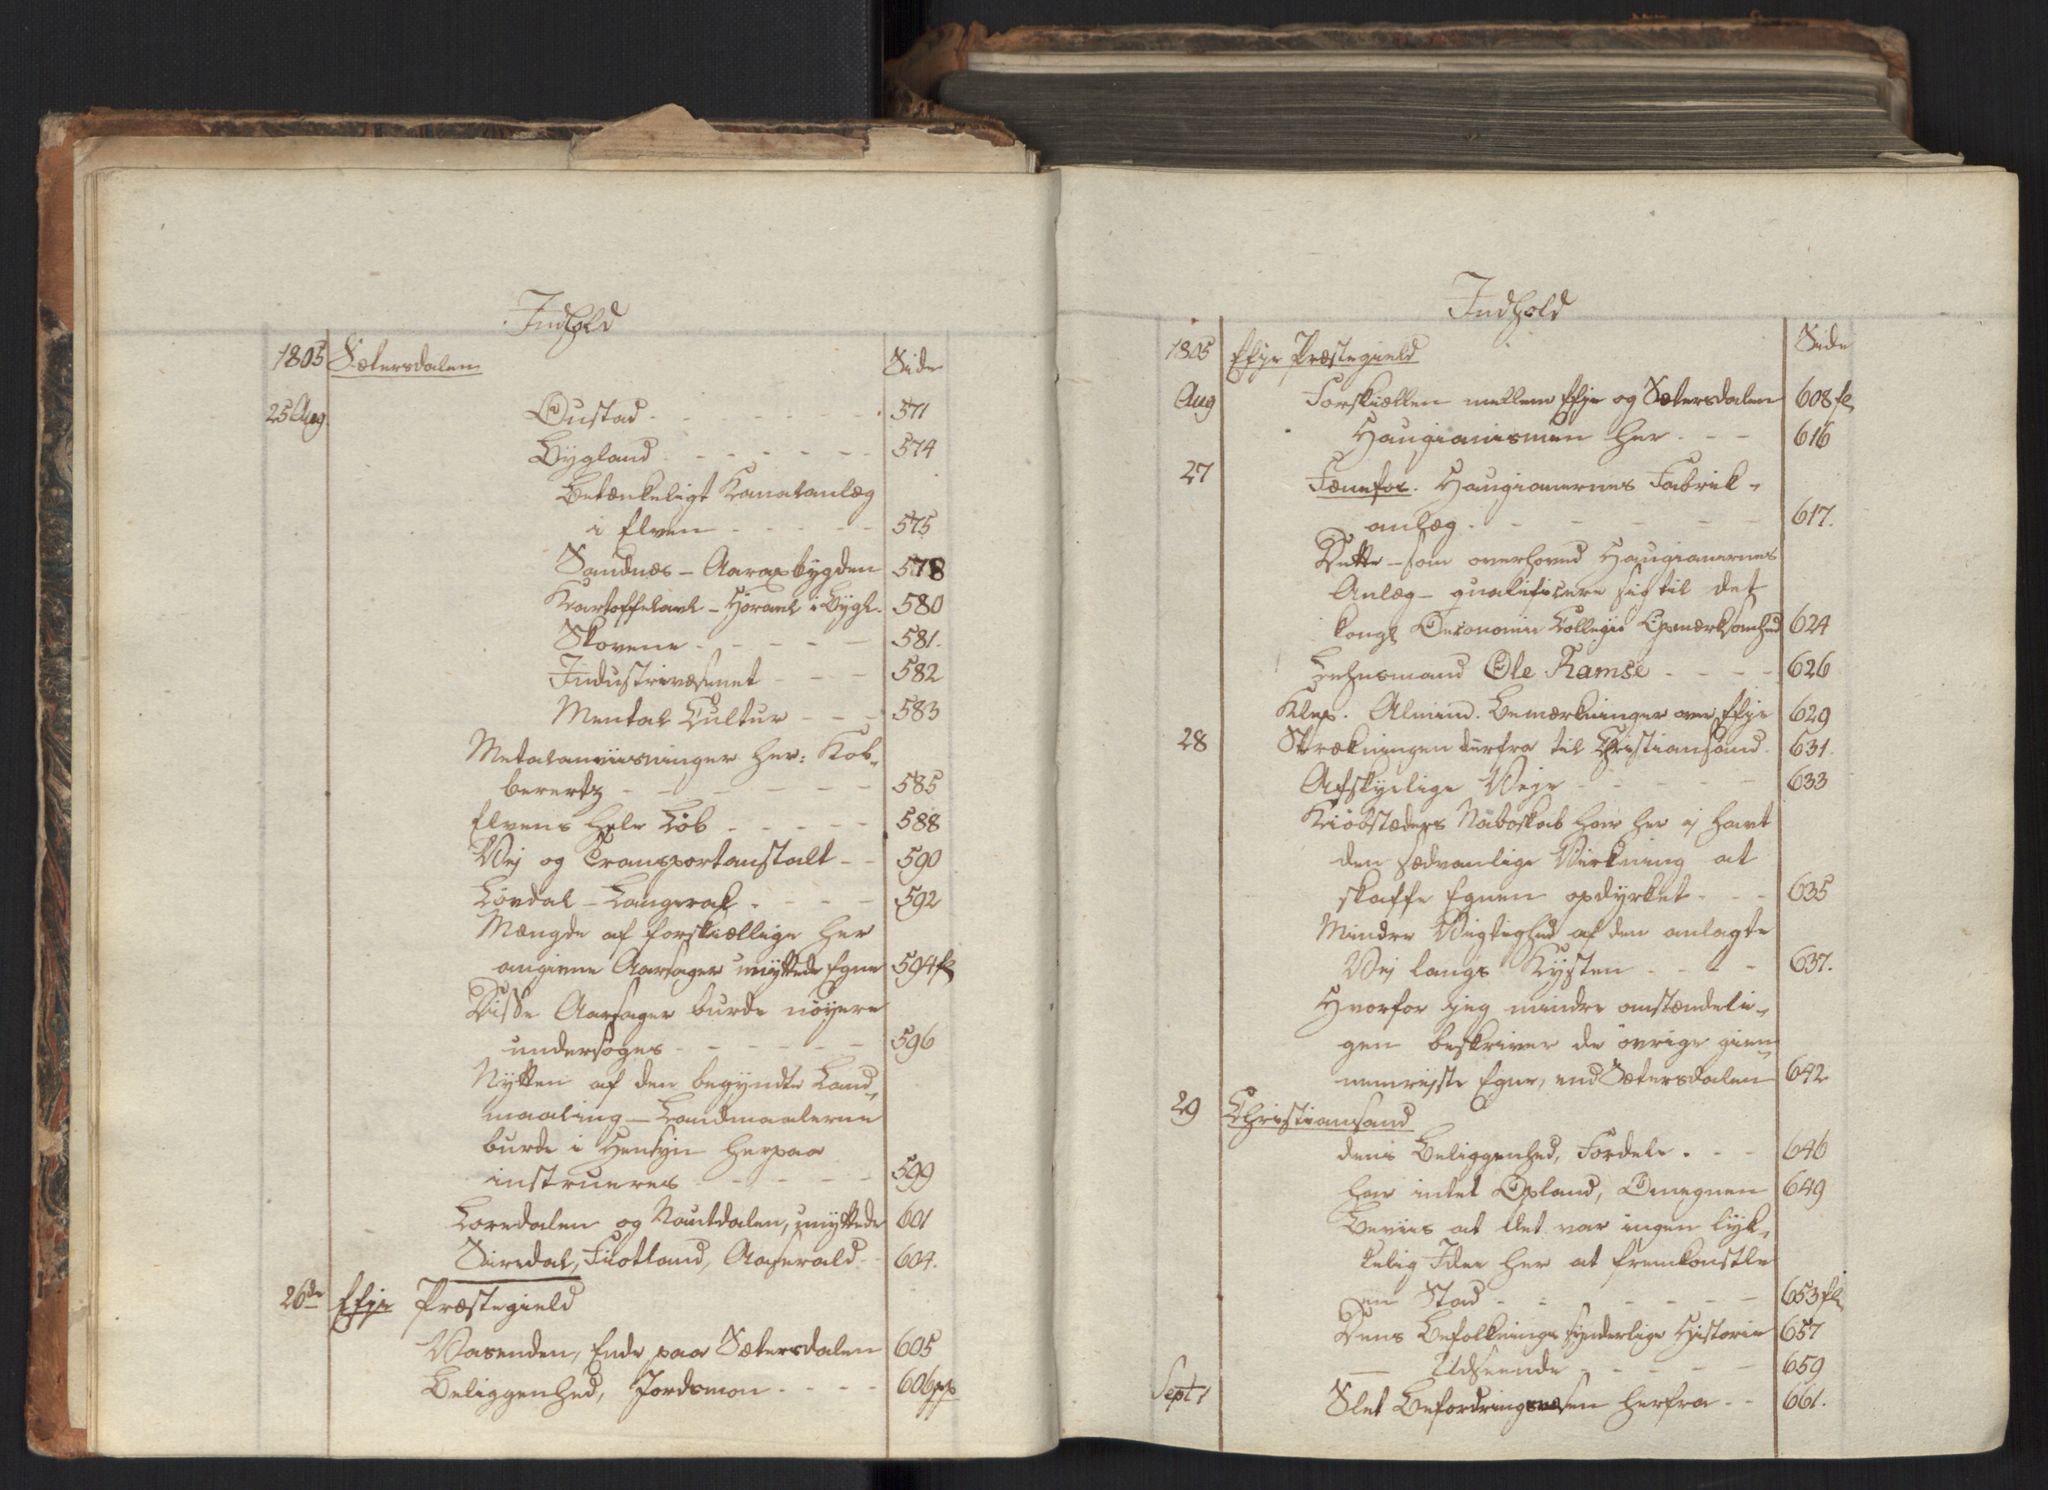 Indhold
1805 Sætersdalen Side
25 Aug Oustad 571
Bygland 574
Betænkeligt Kanalanlæg
i Elven 575
Sandnæs – Aaraxbygden 578
Kartoffelavl – Hóravl i Bygl. 580
Skovene 581.
Industrivæsenet 582
Mental Cultur 583
Metalanviisninger her: Kob-
berertz 585
Elvens hele Lób 588
Vej og Transportanstalt 590
Lóvdal – Langerak 592
Mængde af forskiællige her
angivne Aarsager unyttede Egne 594fl
Disse Aarsager burde nóyere
undersóges 596
Nytten af den begyndte Land-
maaling – Landmaalerne
burde i Hensyn herpaa
instrueres 599
Loredalen og Nautdalen, unyttede 601
Siredal, Fiotland, Aaserald 604.
26de Efje Præstegield
Vasenden, Ende paa Sætersdalen 605
Beliggenhed, Jordsmon 606pp
Indhold
1805 Efje Præstegield Side
Aug Forskiællen mellem Efje og Sætersdalen 608fl
Haugianismen her 616
27 Fænefos. Haugianernes Fabrik-
anlæg 617.
Dette – som overhoved Haugianernes
Anlæg – qualificere sig til det
kongl Oeconomie Collegii Opmærksomhed 624
Lehnsmand Ole Ramse 626
Klep. Almind. Bemærkninger over Efje 629
28 Strækningen derfra til Christiansand 631.
Afskyelige Veje 633
Kióbstæders Naboskab har her ej havt
den sædvanlige Virkning at
skaffe Egnen opdyrket 635
Mindre Vigtighed af den anlagte
Vej langs Kysten 637.
Hvorfor jeg mindre omstændeli-
gen beskriver de óvrige gien-
nemrejste Egne, end Sætersdalen 642
29 Christiansand
dens Beliggenhed, Fordele 646
har intet Opland, Omegnen 649
Beviis at det var ingen lyk-
kelig Idee her at fremkonstle
en Stad 653fl
Dens Befolknings synderlige Historie 657
— Udseende 659
Sept 1 Slet Befordringsvæsen herfra 661.